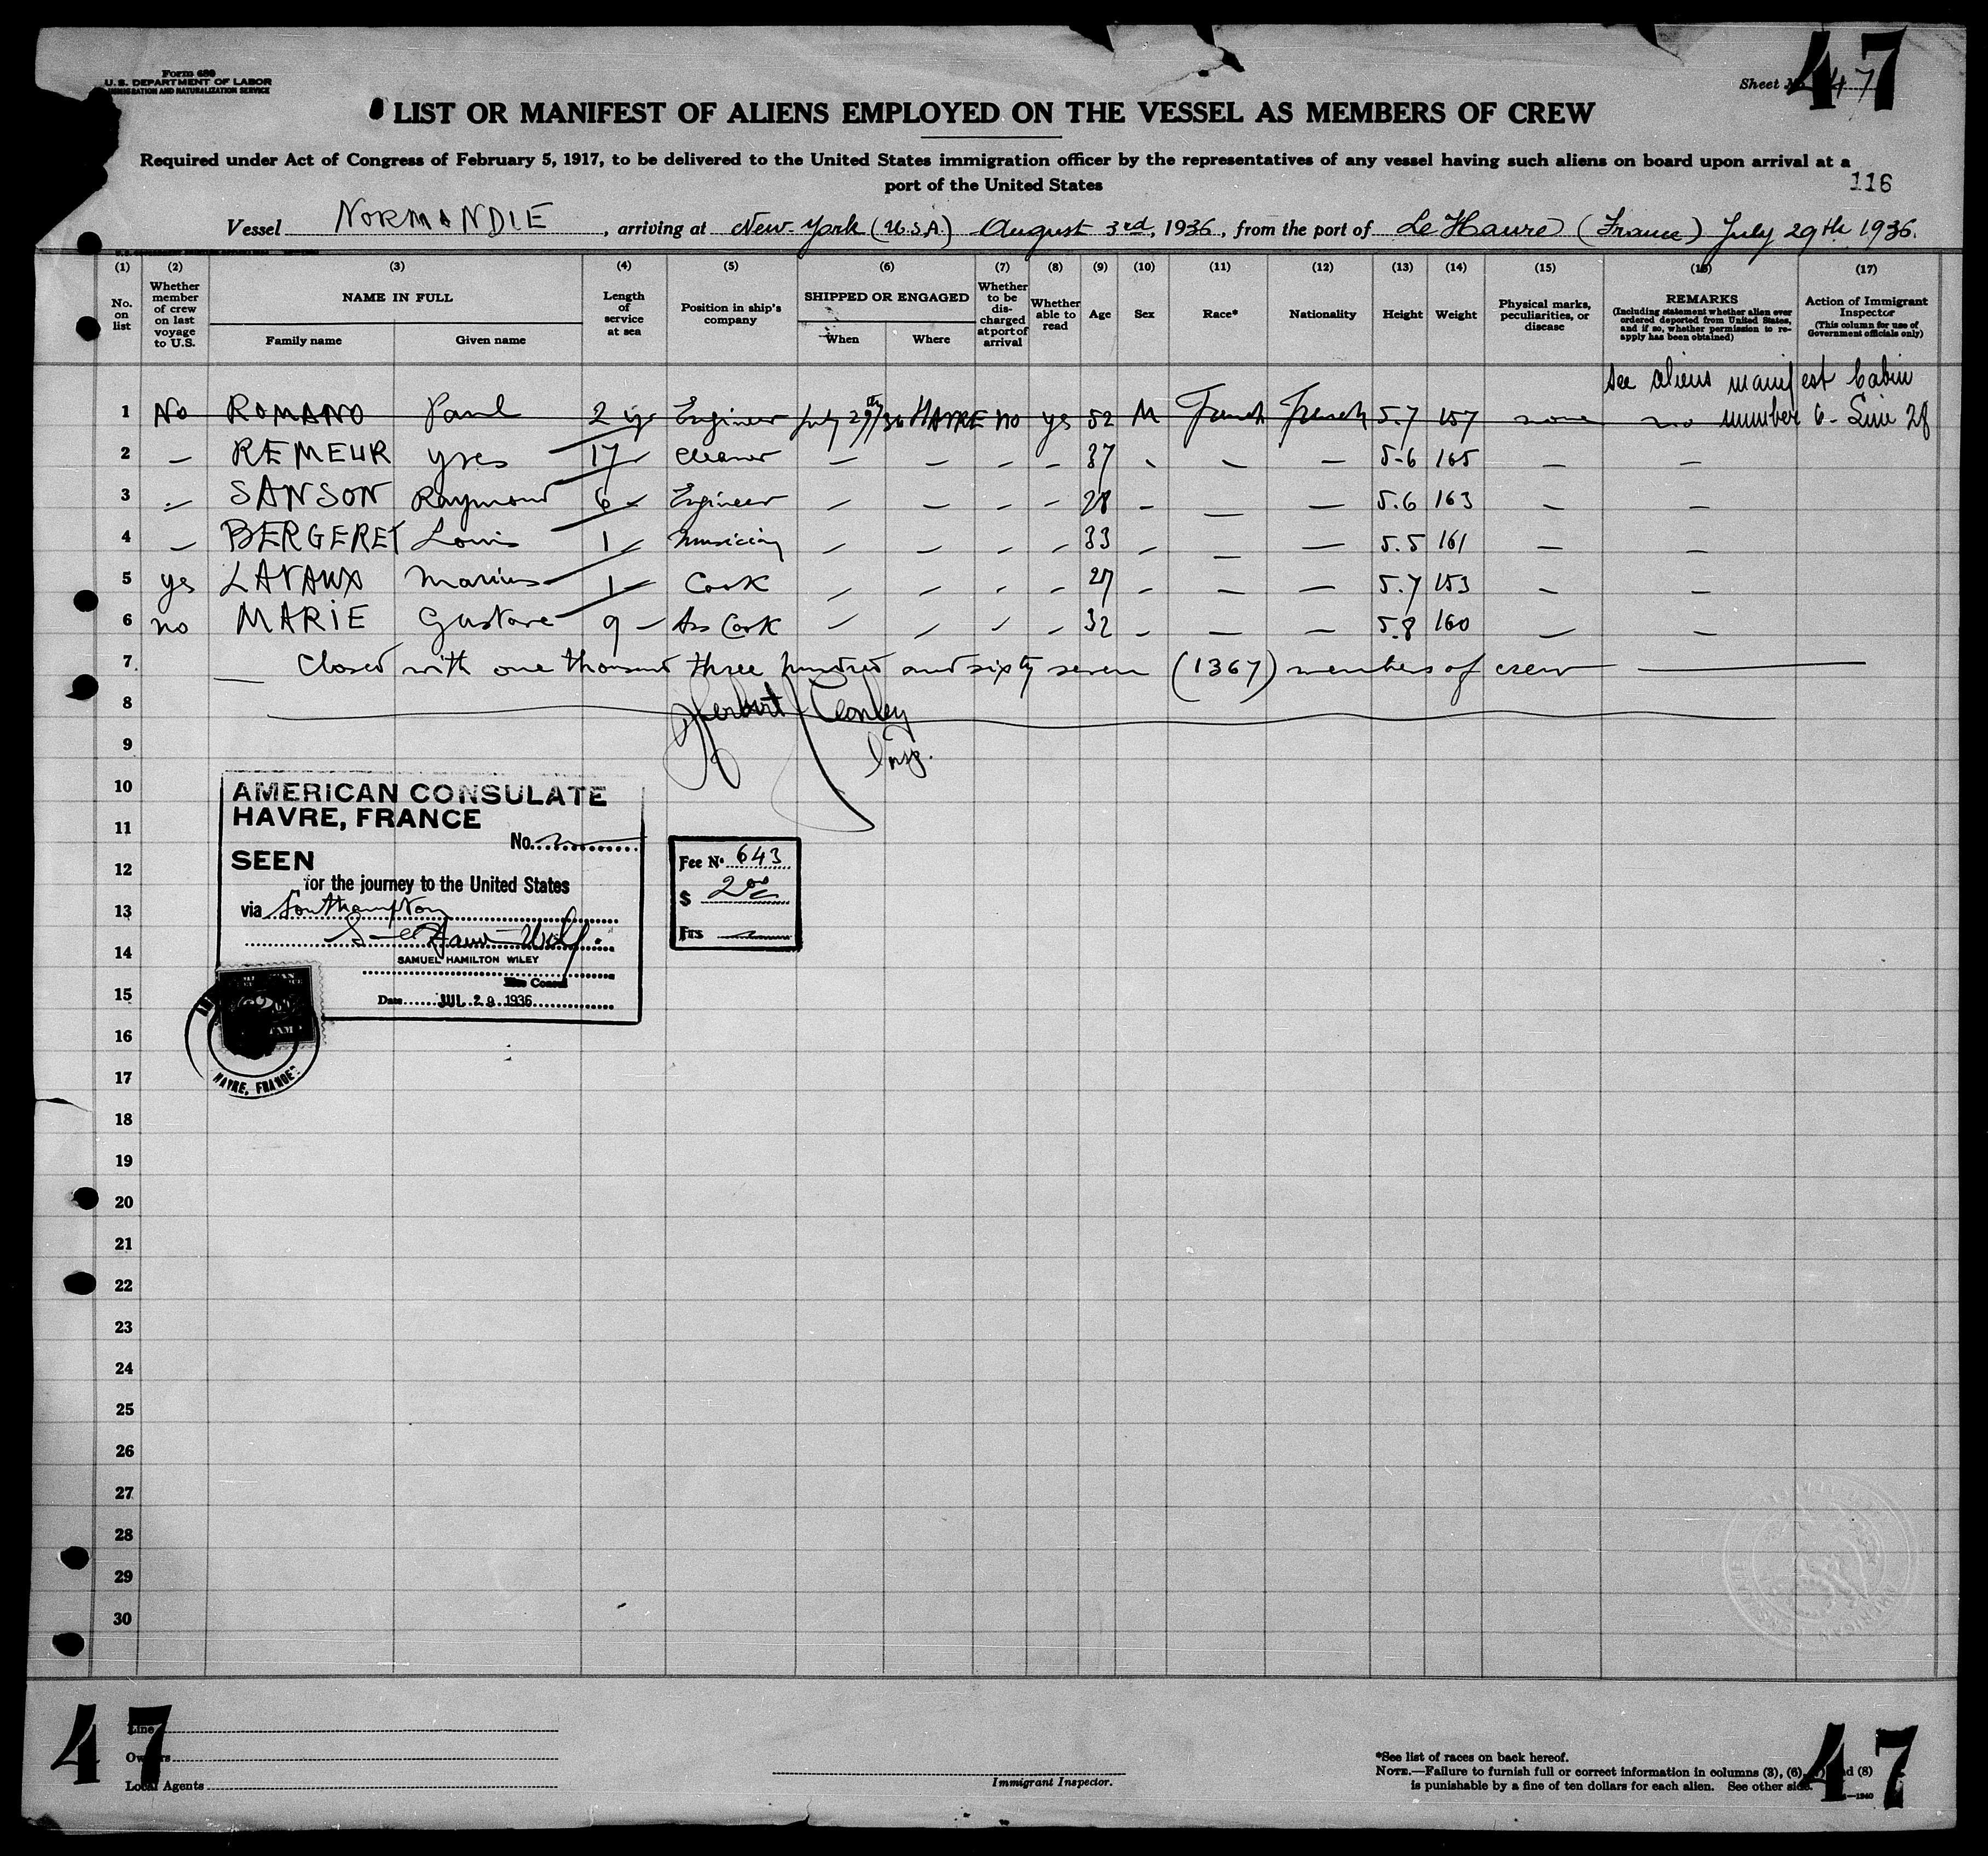 Form 689
U. S. DEPARTMENT OF LABOR
IMMIGRATION AND NATURALIZATION SERVICE
47
Sheet No. 47
LIST OR MANIFEST OF ALIENS EMPLOYED ON THE VESSEL AS MEMBERS OF CREW
Required under Act of Congress of February 5, 1917, to be delivered to the United States immigration officer by the representatives of any vessel having such aliens on board upon arrival at a
port of the United States
116
Vessel NORMANDIE, arriving at New-York (U.S.A.) August 3rd, 1936, from the port of Le Havre (France) July 29th 1936.
(1) (2) (3) (4) (5) (6) (7) (8) (9) (10) (11) (12) (13) (14) (15) (16) (17)
No. on list
Whether member of crew on last voyage to U.S.
NAME IN FULL
Family name Given name
Length of service at sea
Position in ship's company
SHIPPED OR ENGAGED
When Where
Whether to be discharged at port of arrival
Whether able to read
Age
Sex
Race*
Nationality
Height
Weight
Physical marks, peculiarities, or disease
REMARKS
(Including statement whether alien ever ordered deported from United States, and if so, whether permission to re-apply has been obtained)
Action of Immigrant Inspector
(This column for use of Government officials only)
see aliens manifest Cabin
1 No ROMANO Paul 2 yr Engineer July 29th/36 HAVRE no yes 52 M French French 5.7 157 none no number 6 - Line 28
2 — REMEUR Yves 17 — Cleaner — — — — 37 - — — 5-6 165 — —
3 — SANSON Raymond 6 — Engineer — — — — 28 — — — 5.6 163 — —
4 — BERGERET Louis 1 — Musician — — — — 33 — — — 5.5 161 — —
5 yes LAVAUX Marius 1 — Cook — — — — 27 — — — 5.7 153 — —
6 no MARIE Gustave 9 — Ass Cook — — — — 32 — — — 5.8 160 — —
7 — Closed with one thousand three hundred and sixty seven (1367) members of crew
8
Herbert Conley
9
Insp.
10
AMERICAN CONSULATE
HAVRE, FRANCE
11
No.
SEEN
12
Fee No. 643
for the journey to the United States
$ 2.00
13
via Southampton
Frs
14
SAMUEL HAMILTON WILEY
Vice Consul
15
Date JUL 29 1936
16
HAVRE, FRANCE
17
18
19
20
21
22
23
24
25
26
27
28
29
30
47
Line
Owners
Local Agents
Immigrant Inspector.
*See list of races on back hereof.
NOTE.—Failure to furnish full or correct information in columns (3), (6), (7) and (8)
is punishable by a fine of ten dollars for each alien. See other side.
47